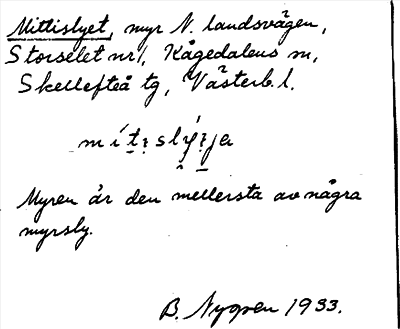 Mittislyet, myr N. landsvägen,
Storselet nr 1, Kågedalens sn,
Skellefteå tg, Västerb. l.
Myren är den mellersta av några
myrsly.
B. Nygren 1933.